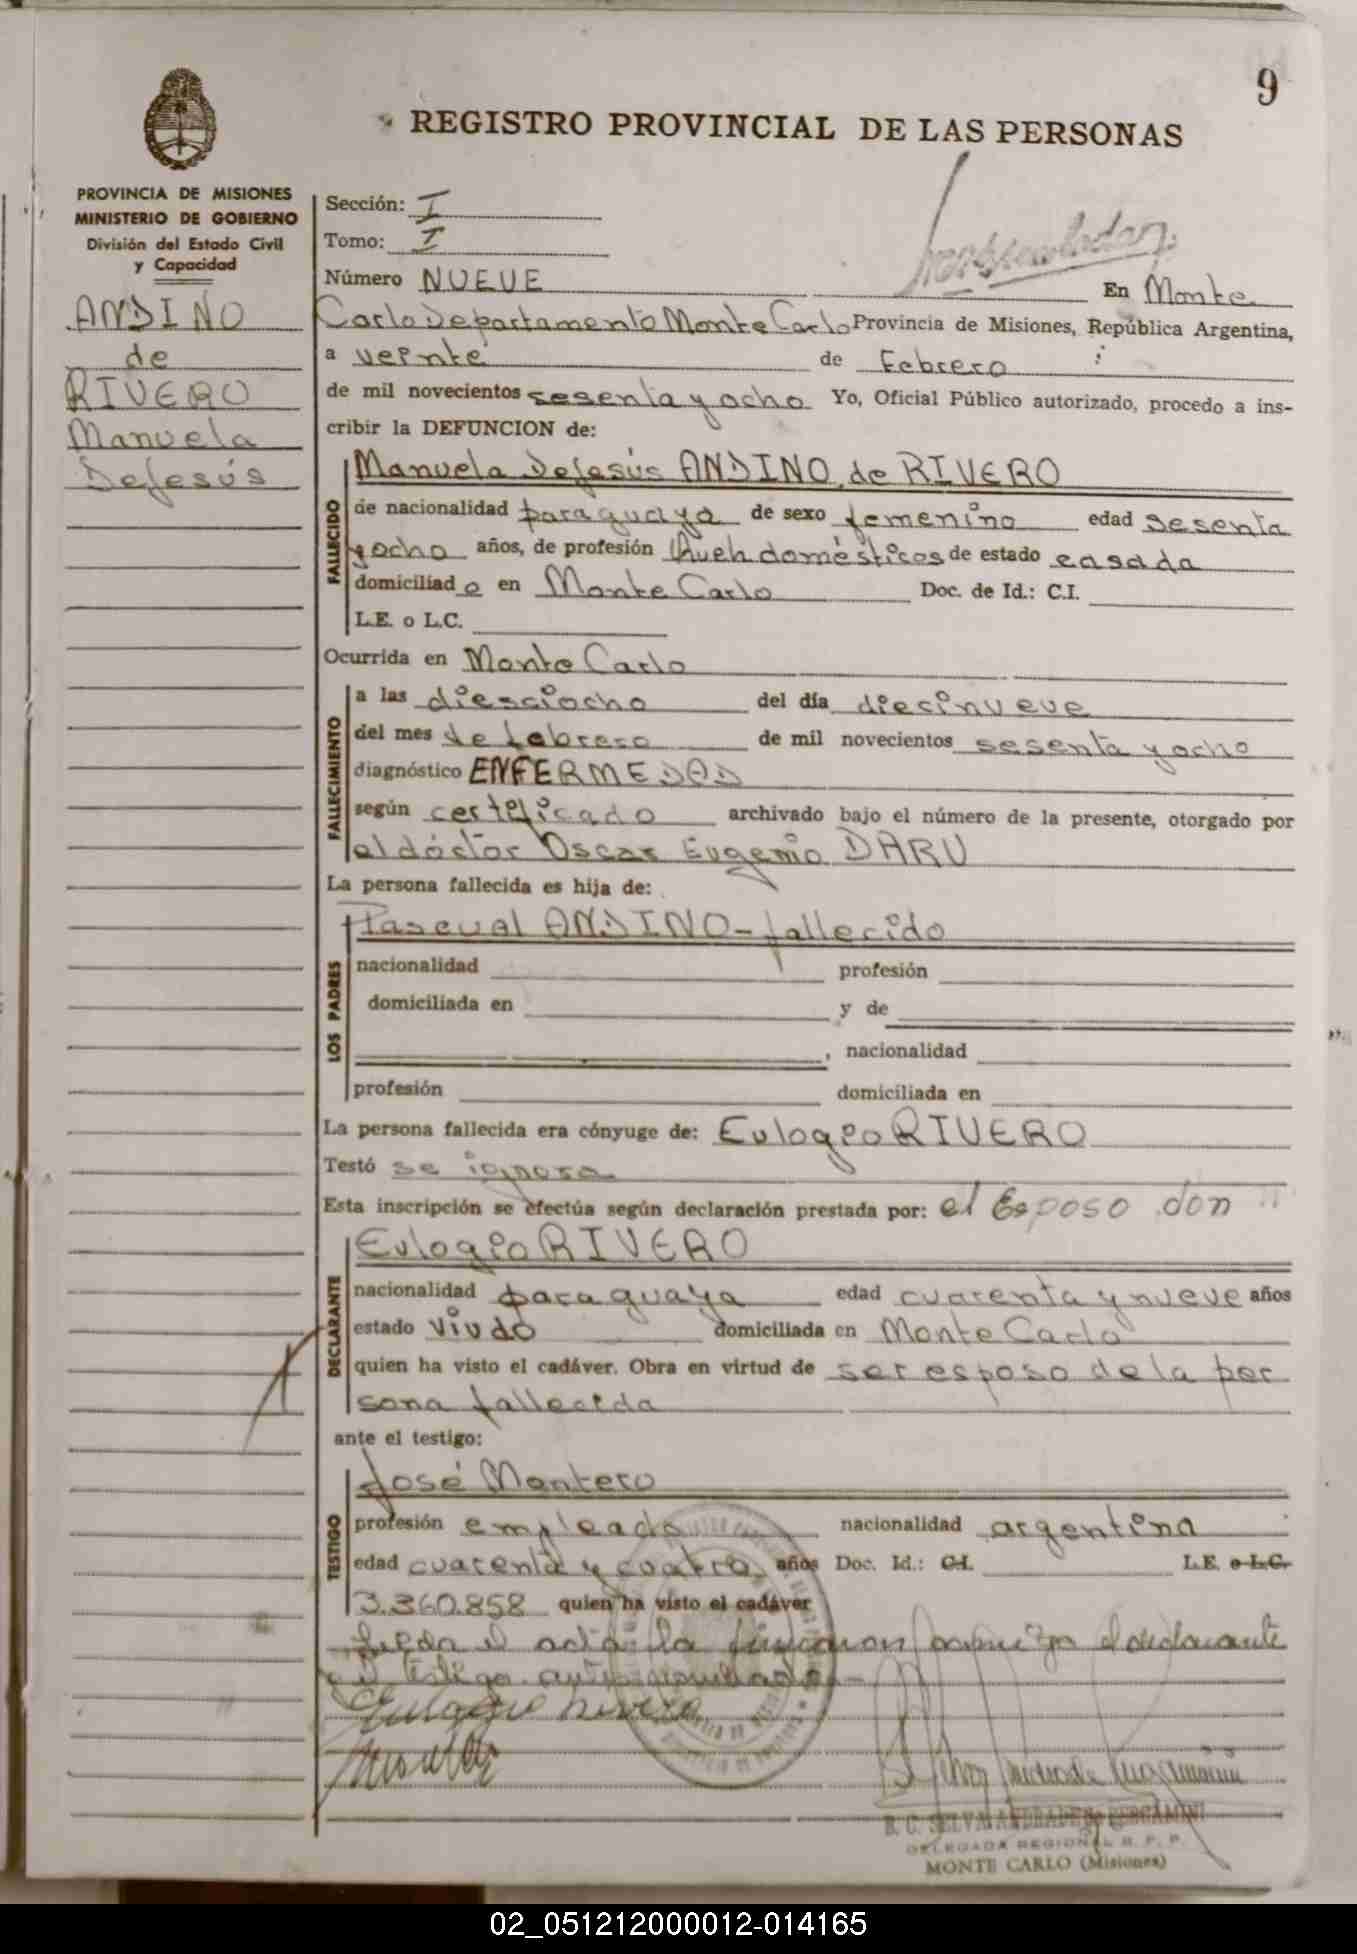 9
REGISTRO PROVINCIAL DE LAS PERSONAS
PROVINCIA DE MISIONES
MINISTERIO DE GOBIERNO
División del Estado Civil
y Capacidad
ANDINO
de
RIVERO
Manuela
DeJesús
Sección: I
Tomo: I
Número NUEVE
En Monte
Carlo Departamento Monte Carlo Provincia de Misiones, República Argentina,
a veinte de Febrero
de mil novecientos sesenta y ocho Yo, Oficial Público autorizado, procedo a ins-
cribir la DEFUNCION de:
FALLECIDO
Manuela DeJesús ANDINO de RIVERO
de nacionalidad paraguaya de sexo femenino edad sesenta
y ocho años, de profesión domésticos de estado casada
domiciliado en Monte Carlo Doc. de Id.: C.I.
L.E. o L.C.
Ocurrida en Monte Carlo
FALLECIMIENTO
a las diesciocho del día diecinueve
del mes de febrero de mil novecientos sesenta y ocho
diagnóstico ENFERMEDAD
según certificado archivado bajo el número de la presente, otorgado por
el dóctor Oscar Eugenio DARU
La persona fallecida es hija de:
LOS PADRES
Pascual ANDINO - fallecido
nacionalidad profesión
domiciliada en y de
, nacionalidad
profesión domiciliada en
La persona fallecida era cónyuge de: Eulogio RIVERO
Testó se ignora
Esta inscripción se efectúa según declaración prestada por: el Esposo don
DECLARANTE
Eulogio RIVERO
nacionalidad paraguaya edad cuarenta y nueve años
estado viudo domiciliada en Monte Carlo
quien ha visto el cadáver. Obra en virtud de ser esposo de la per
sona fallecida
ante el testigo:
TESTIGO
José Montero
profesión empleado nacionalidad argentina
edad cuarenta y cuatro años Doc. Id.: C.I. L.E. o L.C.
3.360.858 quien ha visto el cadáver
el acta la firmaron el declarante
testigo
Eulogio Rivero
R. C. SELVA ANDRADE de BERGAMINI
DELEGADA REGIONAL R. P. P.
MONTE CARLO (Misiones)
02_051212000012-014165